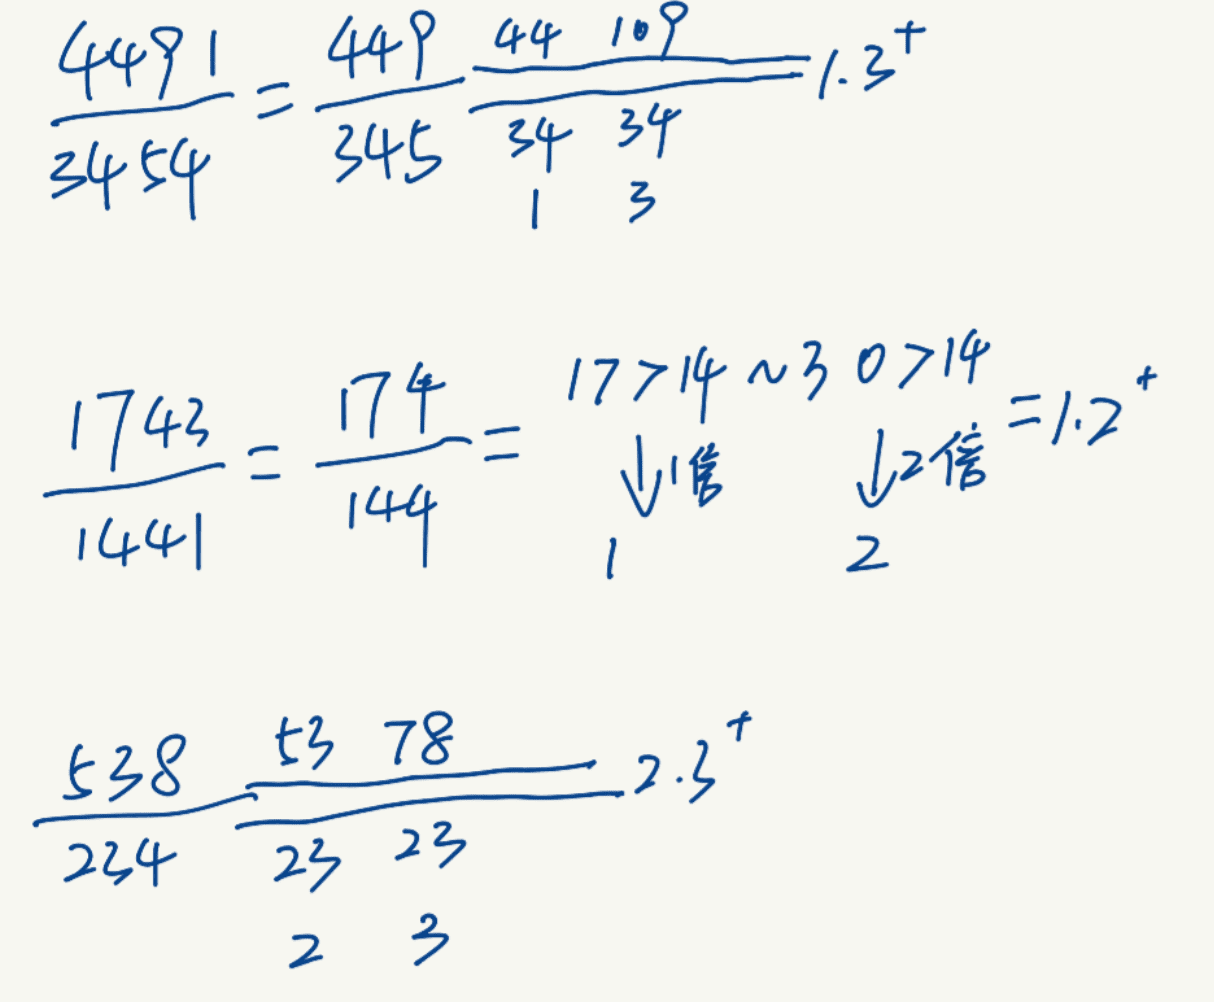 4491/3454 = 449/345 44 109/34 34 1.3⁺
1 3
1743/1441 = 174/144 = 17>14 ~ 3 0>14 = 1.2⁺
↓1倍 ↓2倍
1 2
538/234 53 78/23 23 2.3⁺
2 3